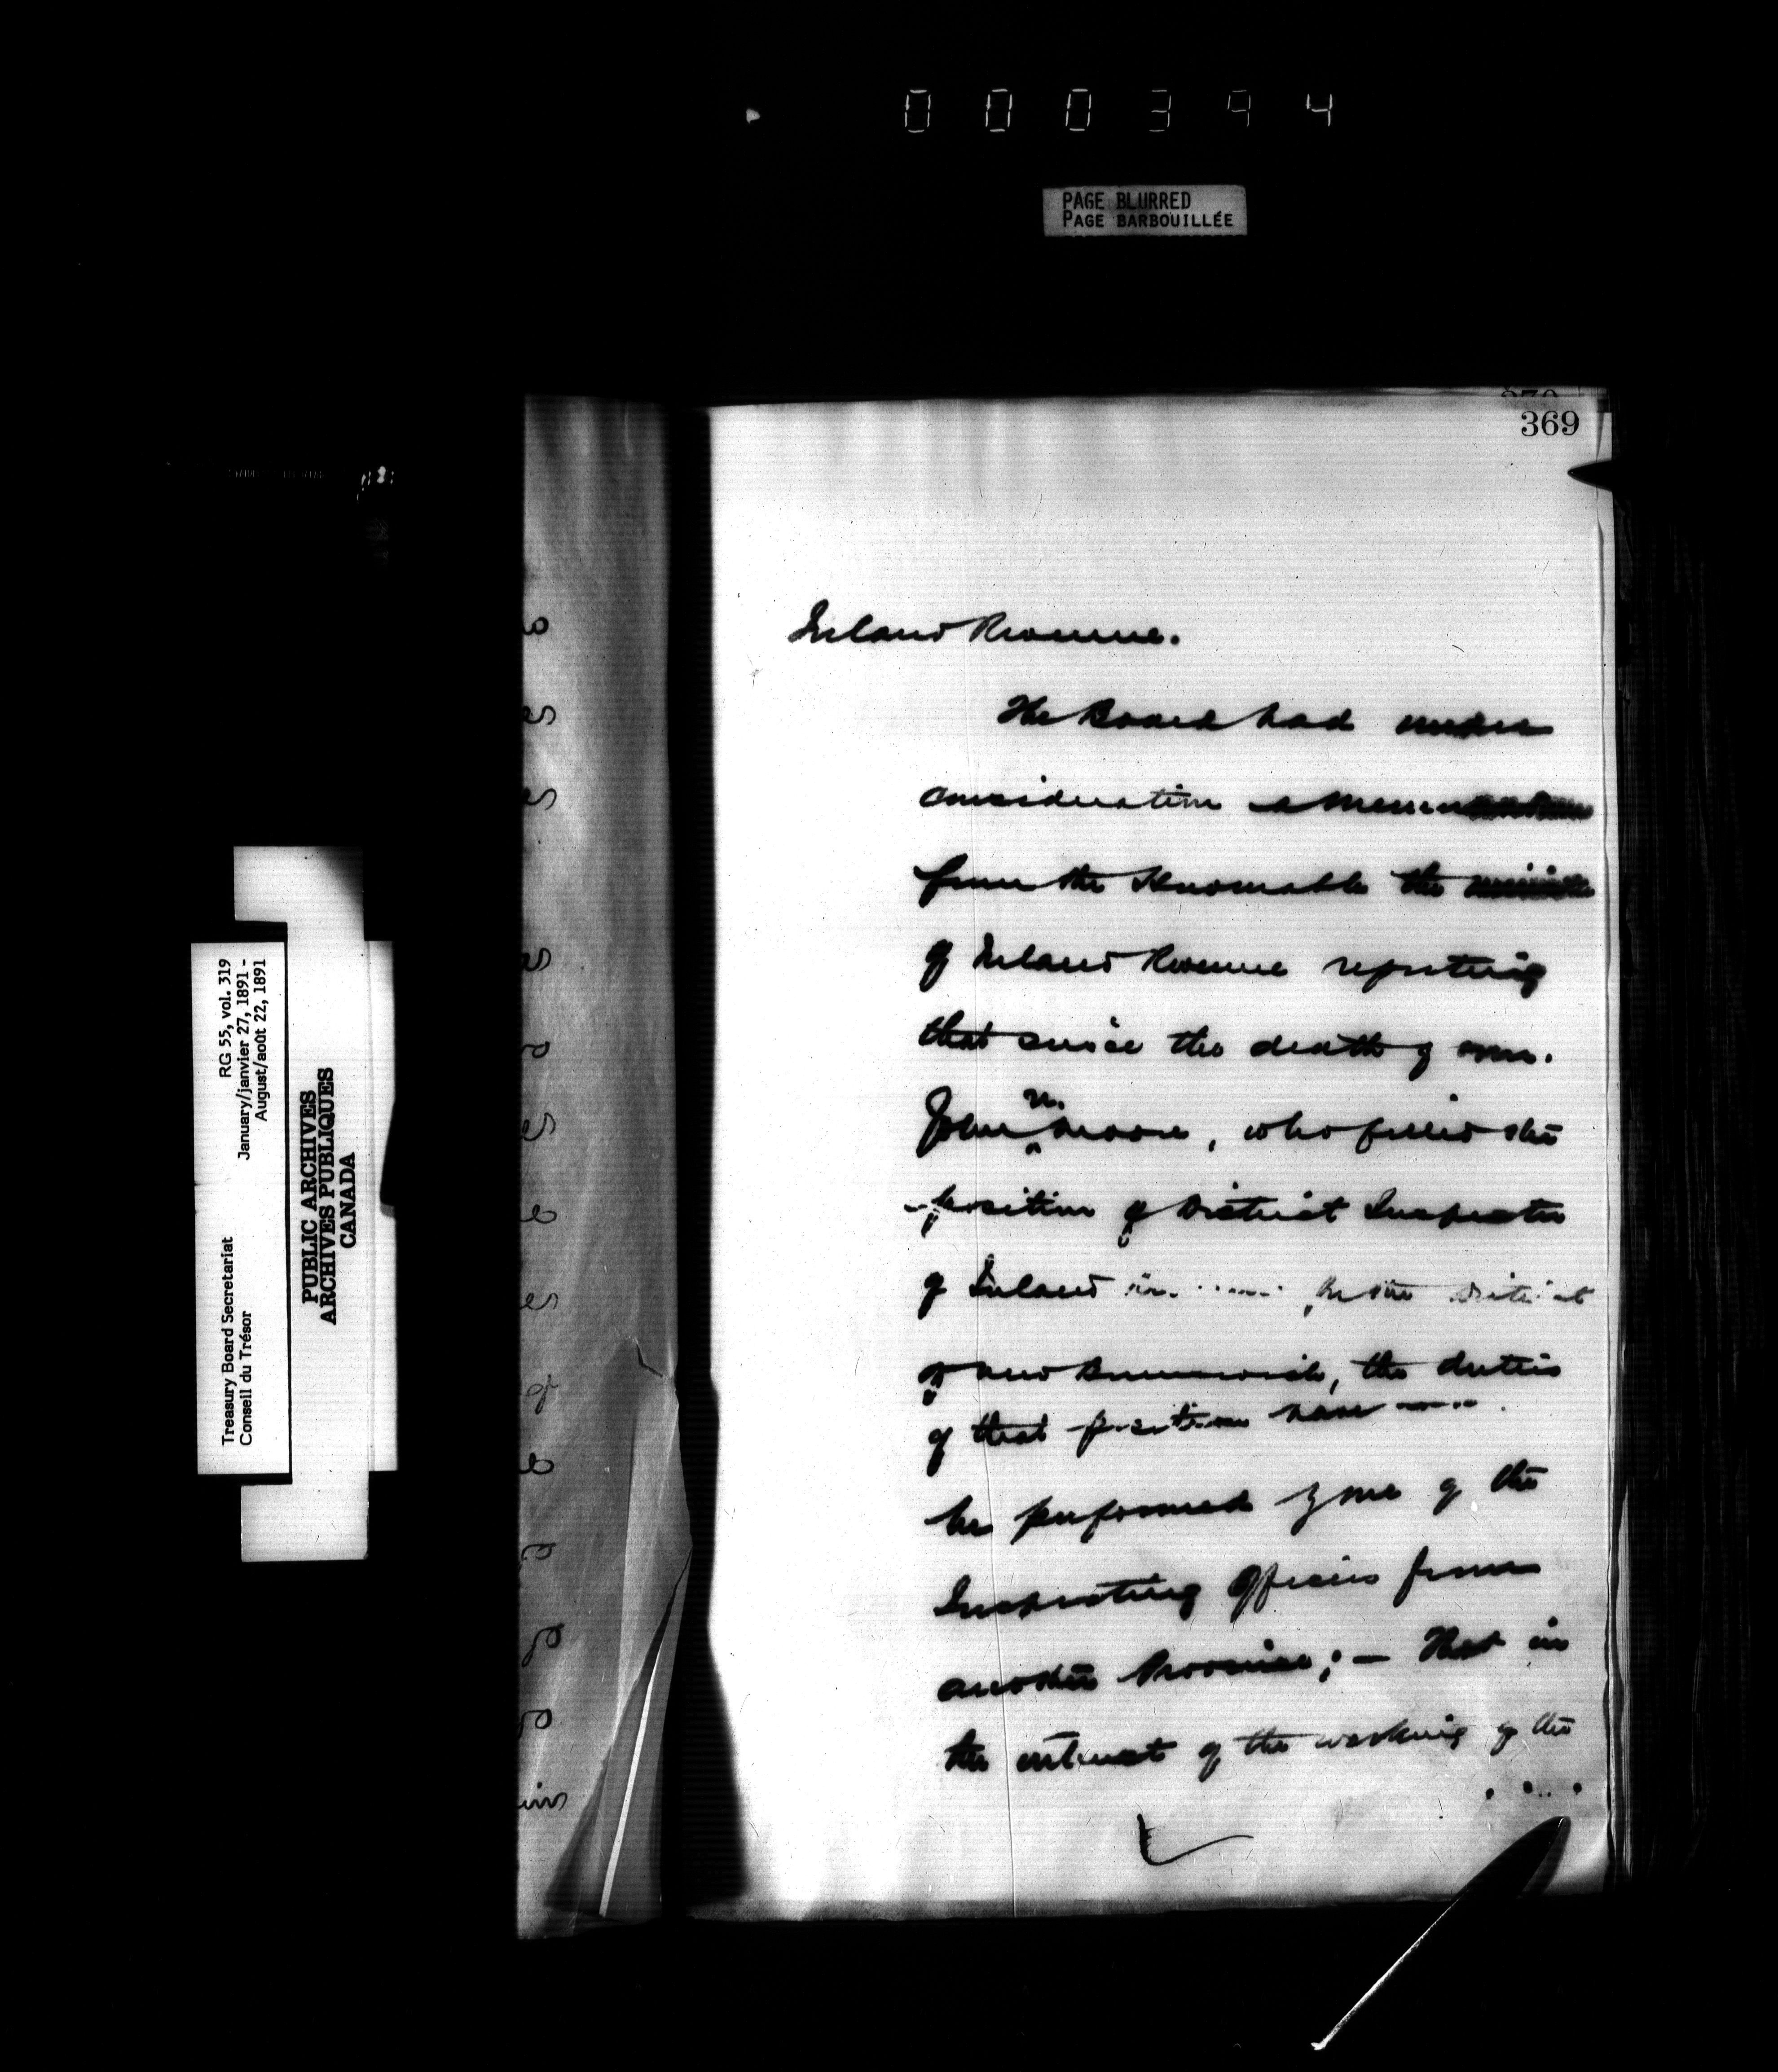 000394
PAGE BLURRED
PAGE BARBOUILLÉE
369
Inland Revenue.
The Board had under
consideration a memorandum
from the Honourable the Minister
of Inland Revenue reporting
that since the death of Mr.
John N. Moore, who filled the
position of District Inspector
of Inland in the District
of New Brunswick, the duties
of that position have
be performed by one of the
Inspecting Officers from
another Province; — That in
the interest of the working of the
RG 55, vol. 319
January/janvier 27, 1891 -
August/août 22, 1891
Treasury Board Secretariat
Conseil du Trésor
PUBLIC ARCHIVES
ARCHIVES PUBLIQUES
CANADA